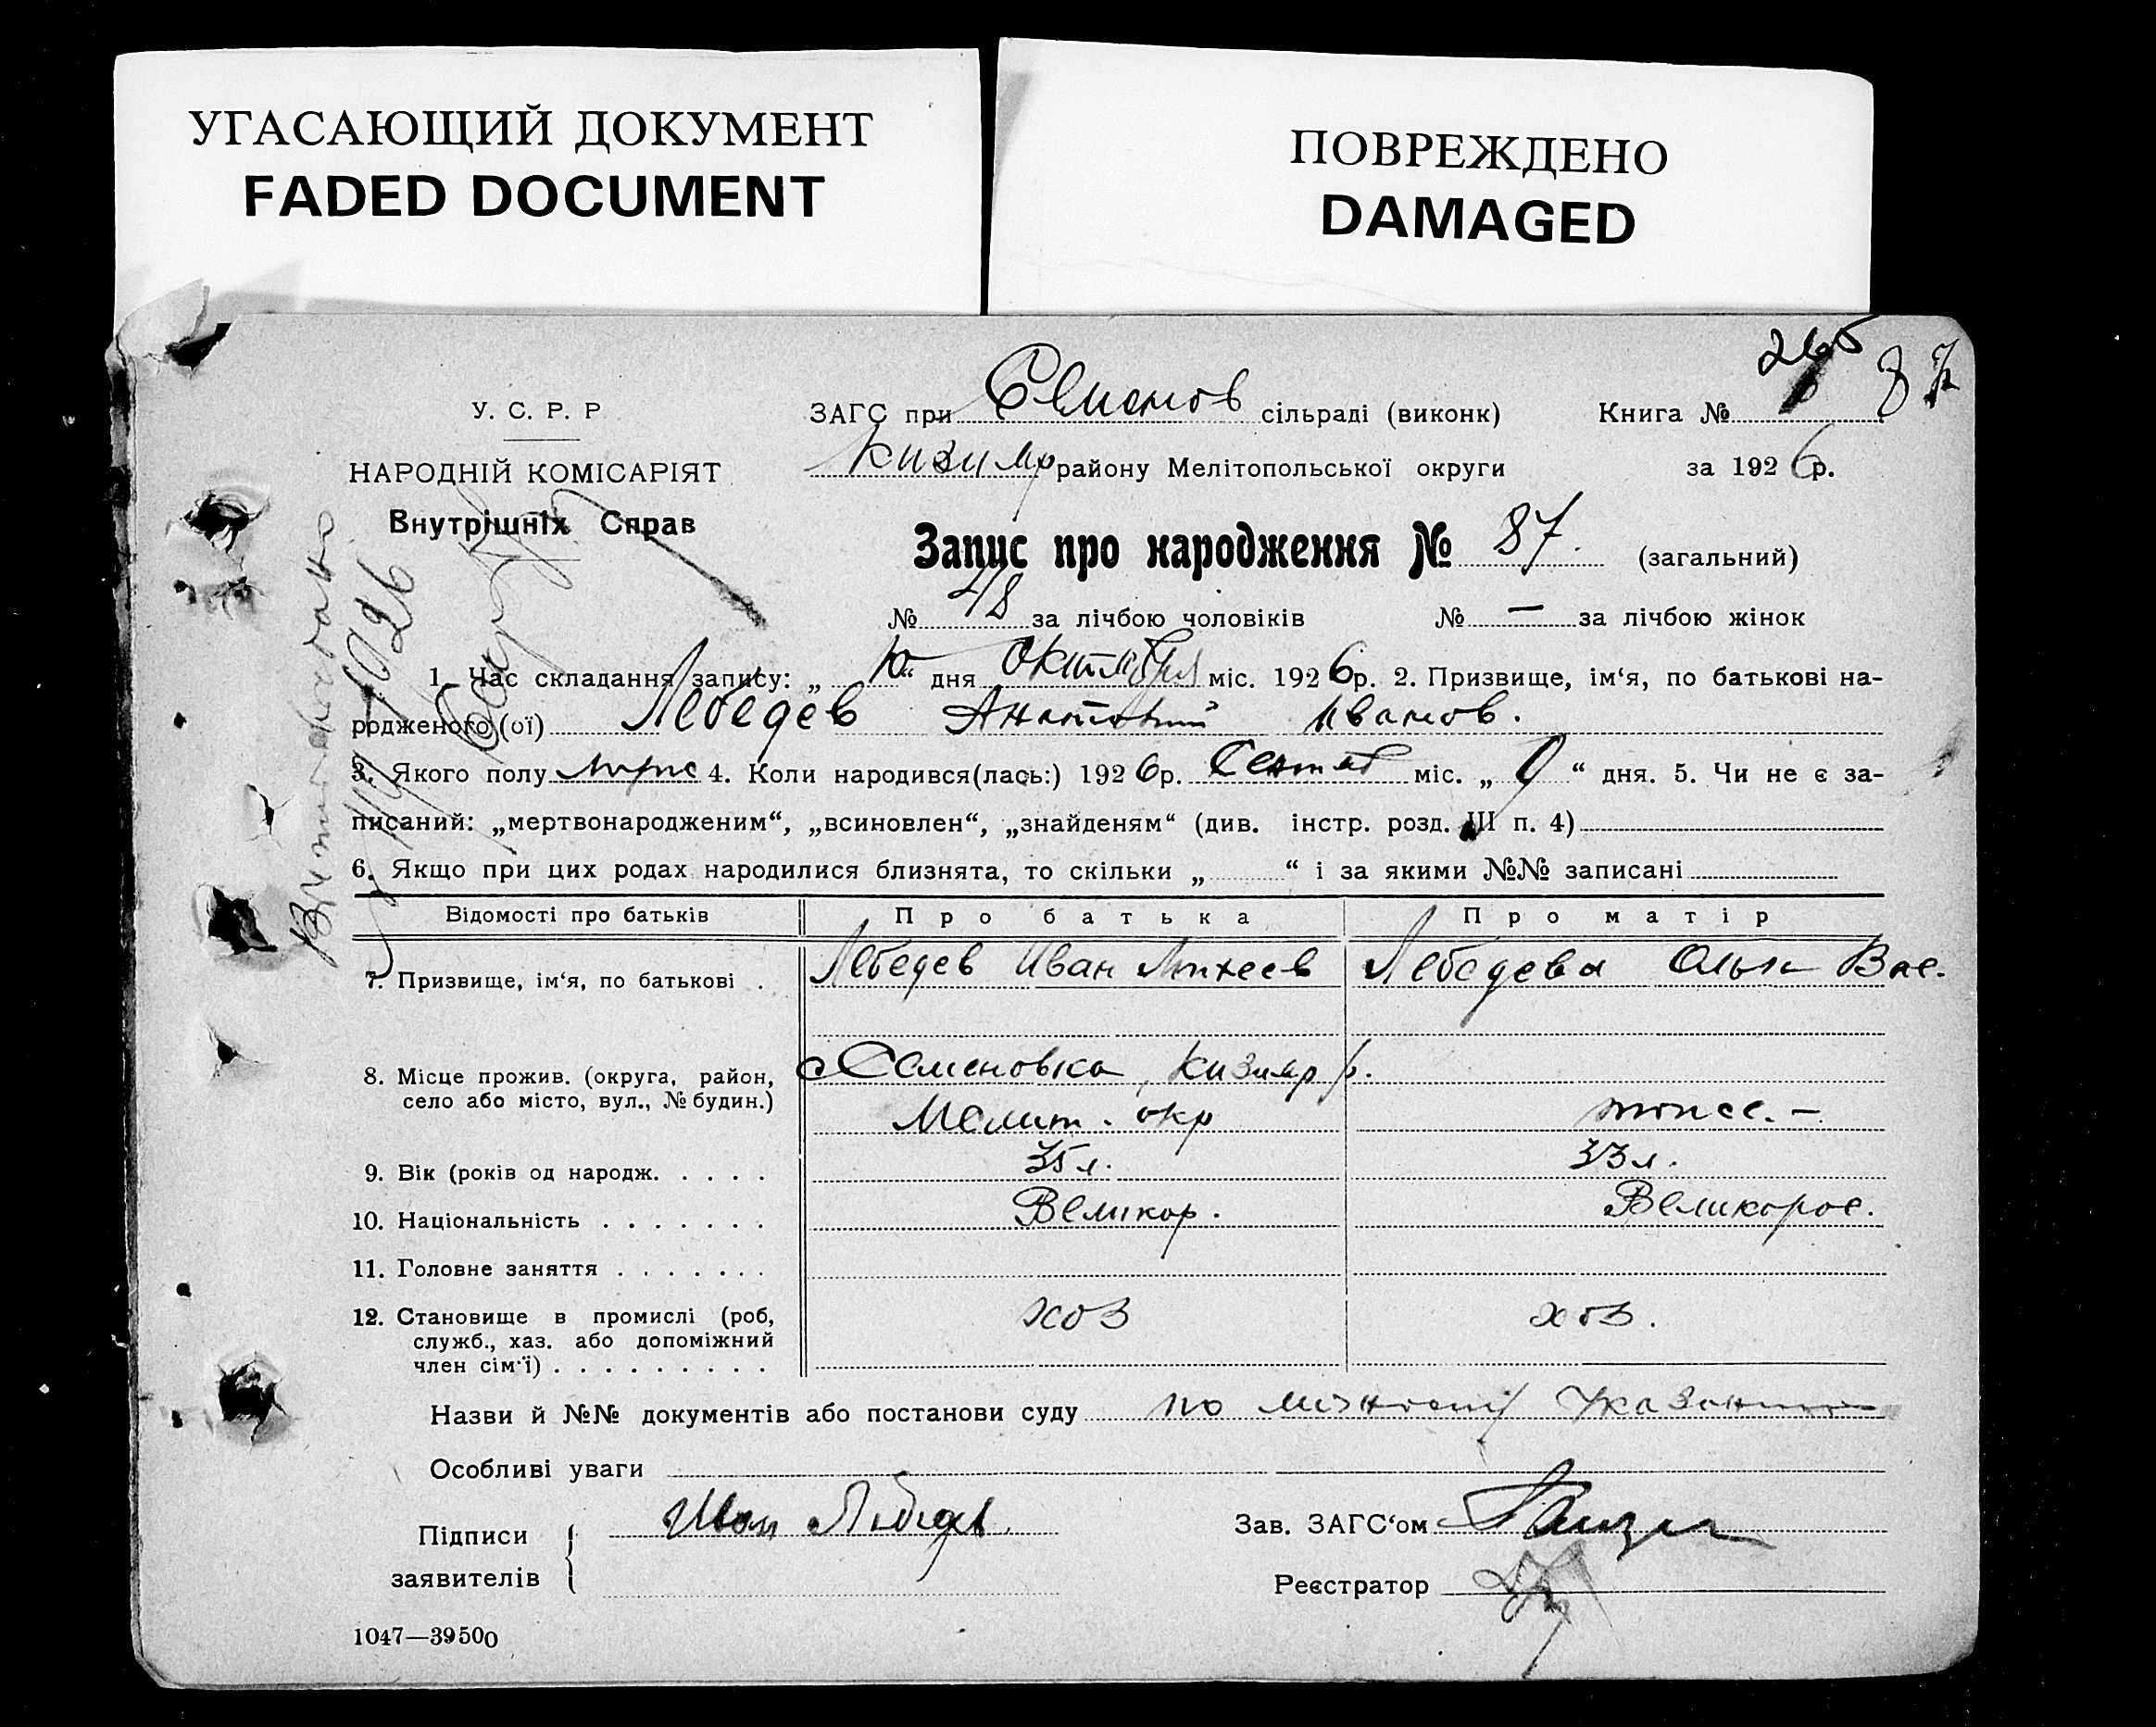 УГАСАЮЩИЙ ДОКУМЕНТ
FADED DOCUMENT
ПОВРЕЖДЕНО
DAMAGED
265 87
У. С. Р. Р
НАРОДНІЙ КОМІСАРІЯТ
Внутрішніх Справ
ЗАГС при Семенов сільраді (виконк) Книга №
Кизияр району Мелітопольської округи за 1926р.
Запис про народження № 87. (загальний)
№ 48 за лічбою чоловіків № — за лічбою жінок
1. Час складання запису: „ 10 “ дня Октября міс. 1926р. 2. Призвище, ім‘я, по батькові на-
родженого (ої) Лебедев Анатолий Иванов.
3. Якого полу 4. Коли народився(лась:) 1926р. Сентяб міс. „ 9 “ дня. 5. Чи не є за-
писаний: „мертвонародженим“, „всиновлен“, „знайденям“ (див. інстр. розд. III п. 4)
6. Якщо при цих родах народилися близнята, то скільки „ “ і за якими №№ записані
Відомості про батьків Про батька Про матір
7. Призвище, ім‘я, по батькові . Лебедев Иван Михеев Лебедева Ольга Вас.
8. Місце прожив. (округа, район, с Семеновка, Кизияр р.
село або місто, вул., № будин.) Мелит. окр тоже. –
9. Вік (років од народж. . . . . 35 л. 33 л.
10. Національність . . . . . . . Великор. Великорос.
11. Головне заняття . . . . . . .
12. Становище в промислі (роб, хоз хоз.
служб., хаз. або допоміжний
член сім‘ї) . . . . . . . . .
Назви й №№ документів або постанови суду по личному указанию
Особливі уваги
Підписи Иван Лебедев. Зав. ЗАГС‘ом
заявителів Реєстратор
1047—39500